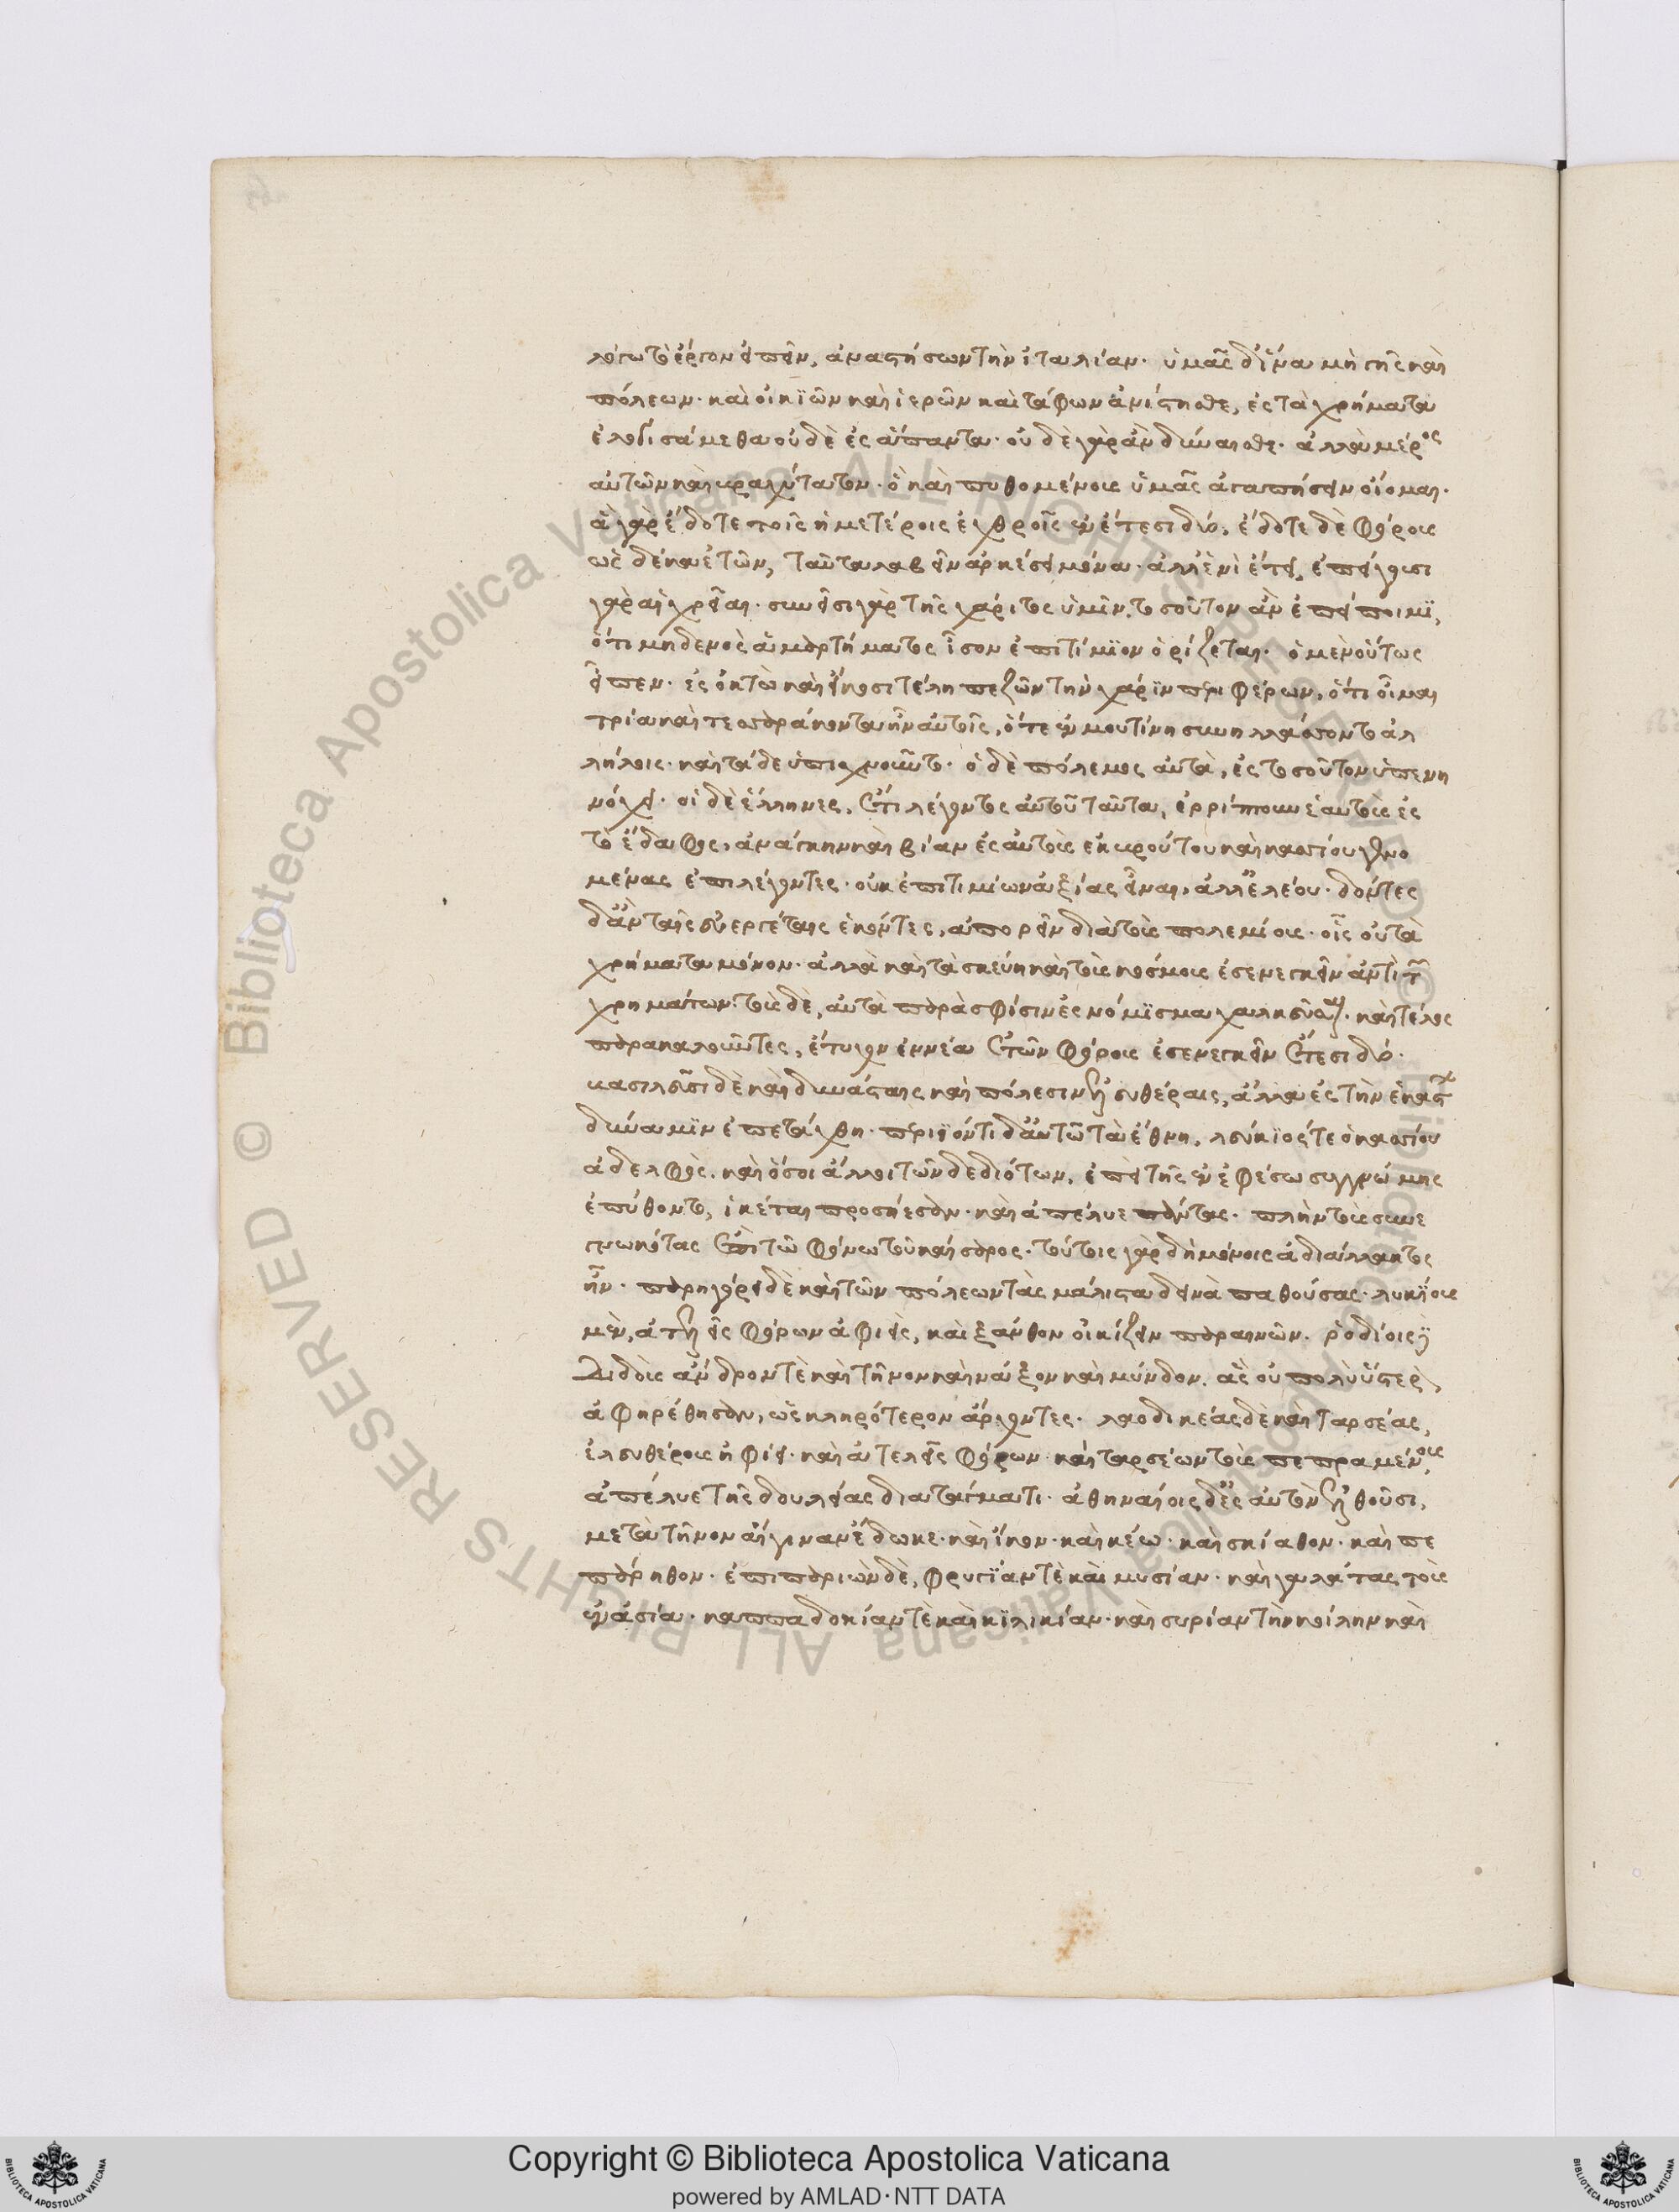 λόγῳ τὸ ἔργον εἰπεῖν, ἀναστήσων τὴν ἰταλίαν. ὑμᾶς δ' ἵνα μὴ γῆς καὶ
πόλεων. καὶ οἰκιῶν καὶ ἱερῶν καὶ τάφων ἀνίστησθε, ἐς τὰ χρήματα
ἐλογισάμεθα οὐδὲ ἐς ἅπαντα. οὐδὲ γὰρ ἂν δύναισθε. ἀλλὰ μέρος
αὐτῶν καὶ βραχύτατον. ὃ καὶ πυθομένους ὑμᾶς ἀγαπήσειν οἴομαι.
ἃ γὰρ ἔδοτε τοῖς ἡμετέροις ἐχθροῖς ἐν ἔτεσι δύο, ἔδοτε δὲ φόρους
ὡς δέκα ἐτῶν, ταῦτα λαβεῖν ἀρκέσει μόνα. ἀλλ' ἑνὶ ἔτει, ἐπείγουσι
γὰρ αἱ χρεῖαι. συνεῖσι γὰρ τῆς χάριτος ὑμῖν. τοσοῦτον ἂν ἐπείποιμι,
ὅτι μηδενὸς ἁμαρτήματος ἴσον ἐπιτίμιον ὁρίζεται. ὁ μὲν οὕτως
εἶπεν. ἐς ὀκτὼ καὶ εἴκοσι τέλη πεζῶν τὴν χάριν περιφέρων, ὅτι οἶμαι
τρία καὶ τεσσαράκοντα ἦν αὐτοῖς, ὅτε ἐν μουτίνῃ συνηλλάσσοντο ἀλ
λήλοις. καὶ τάδε ὑπισχνοῦντο. ὁ δὲ πόλεμος αὐτὰ, ἐς τοσοῦτον ὑπενη
νόχει. οἱ δὲ ἕλληνες, ἔτι λέγοντος αὐτοῦ ταῦτα, ἐρρίπτουν ἑαυτοὺς ἐς
τὸ ἔδαφος, ἀνάγκην καὶ βίαν ἐς αὐτοὺς ἐκ βρούτου καὶ κασσίου γενο
μένας ἐπιλέγοντες. οὐκ ἐπιτιμίων ἀξίας εἶναι, ἀλλ' ἐλέου. δόντες
δ' ἂν τοῖς εὐεργέταις ἑκόντες, ἀπορεῖν διὰ τοὺς πολεμίους. οἷς οὐ τὰ
χρήματα μόνον. ἀλλὰ καὶ τὰ σκεύη καὶ τοὺς κόσμους ἐσενεγκεῖν ἀντὶ τῶν
χρημάτων. τοὺς δὲ, αὐτὰ παρὰ σφίσιν ἐς νόμισμα χαλκεῦσαι. καὶ τέλος
παρακαλοῦντες, ἔτυχον ἐννέα ἐτῶν φόρους ἐσενεγκεῖν ἔτεσι δύο.
βασιλεῦσι δὲ καὶ δυνάσταις καὶ πόλεσιν ἐλευθέραις, ἄλλα ἐς τὴν ἑκάστων
δύναμιν ἐπετάχθη. περιϊόντι δ' αὐτῷ τὰ ἔθνη, λεύκιός τε ὁ κασσίου
ἀδελφὸς. καὶ ὅσοι ἄλλοι τῶν δεδιότων, ἐπεὶ τῆς ἐν ἐφέσῳ συγγνώμης
ἐπύθοντο, ἱκέται προσῄεσαν. καὶ ἀπέλυε πάντας. πλὴν τοὺς συνε
γνωκότας ἐπὶ τῷ φόνῳ τοῦ καίσαρος. τούτοις γὰρ δὴ μόνοις ἀδιάλλακτος
ἦν. παρηγόρει δὲ καὶ τῶν πόλεων τὰς μάλιστα δεινὰ παθούσας. λυκίους
μὲν, ἀτελεῖς φόρων ἀφιεὶς, καὶ ξάνθον οἰκίζειν παραινῶν. ῥοδίοις
διδοὺς ἄνδρον τὲ καὶ τῆνον καὶ νάξον καὶ μύνδον. ἃς οὐ πολὺ ὕστερον,
ἀφῃρέθησαν, ὡς σκληρότερον ἄρχοντες. λαοδικέας δὲ καὶ ταρσέας,
ἐλευθέρους ἠφίει. καὶ ἀτελεῖς φόρων. καὶ ταρσέων τοὺς πεπραμένους,
ἀπέλυε τῆς δουλείας διατάγματι. ἀθηναίοις δ' ἐς αὐτὸν ἐλθοῦσι,
μετὰ τῆνον αἴγιναν ἔδωκε. καὶ ἴκον. καὶ κέω. καὶ σκίαθον. καὶ πε
πάρηθον. ἐπιπαριὼν δὲ, φρυγίαν τὲ καὶ μυσίαν. καὶ γαλάτας τοὺς
ἐν ἀσίᾳ. καππαδοκίαν τὲ καὶ κιλικίαν. καὶ συρίαν τὴν κοίλην καὶ